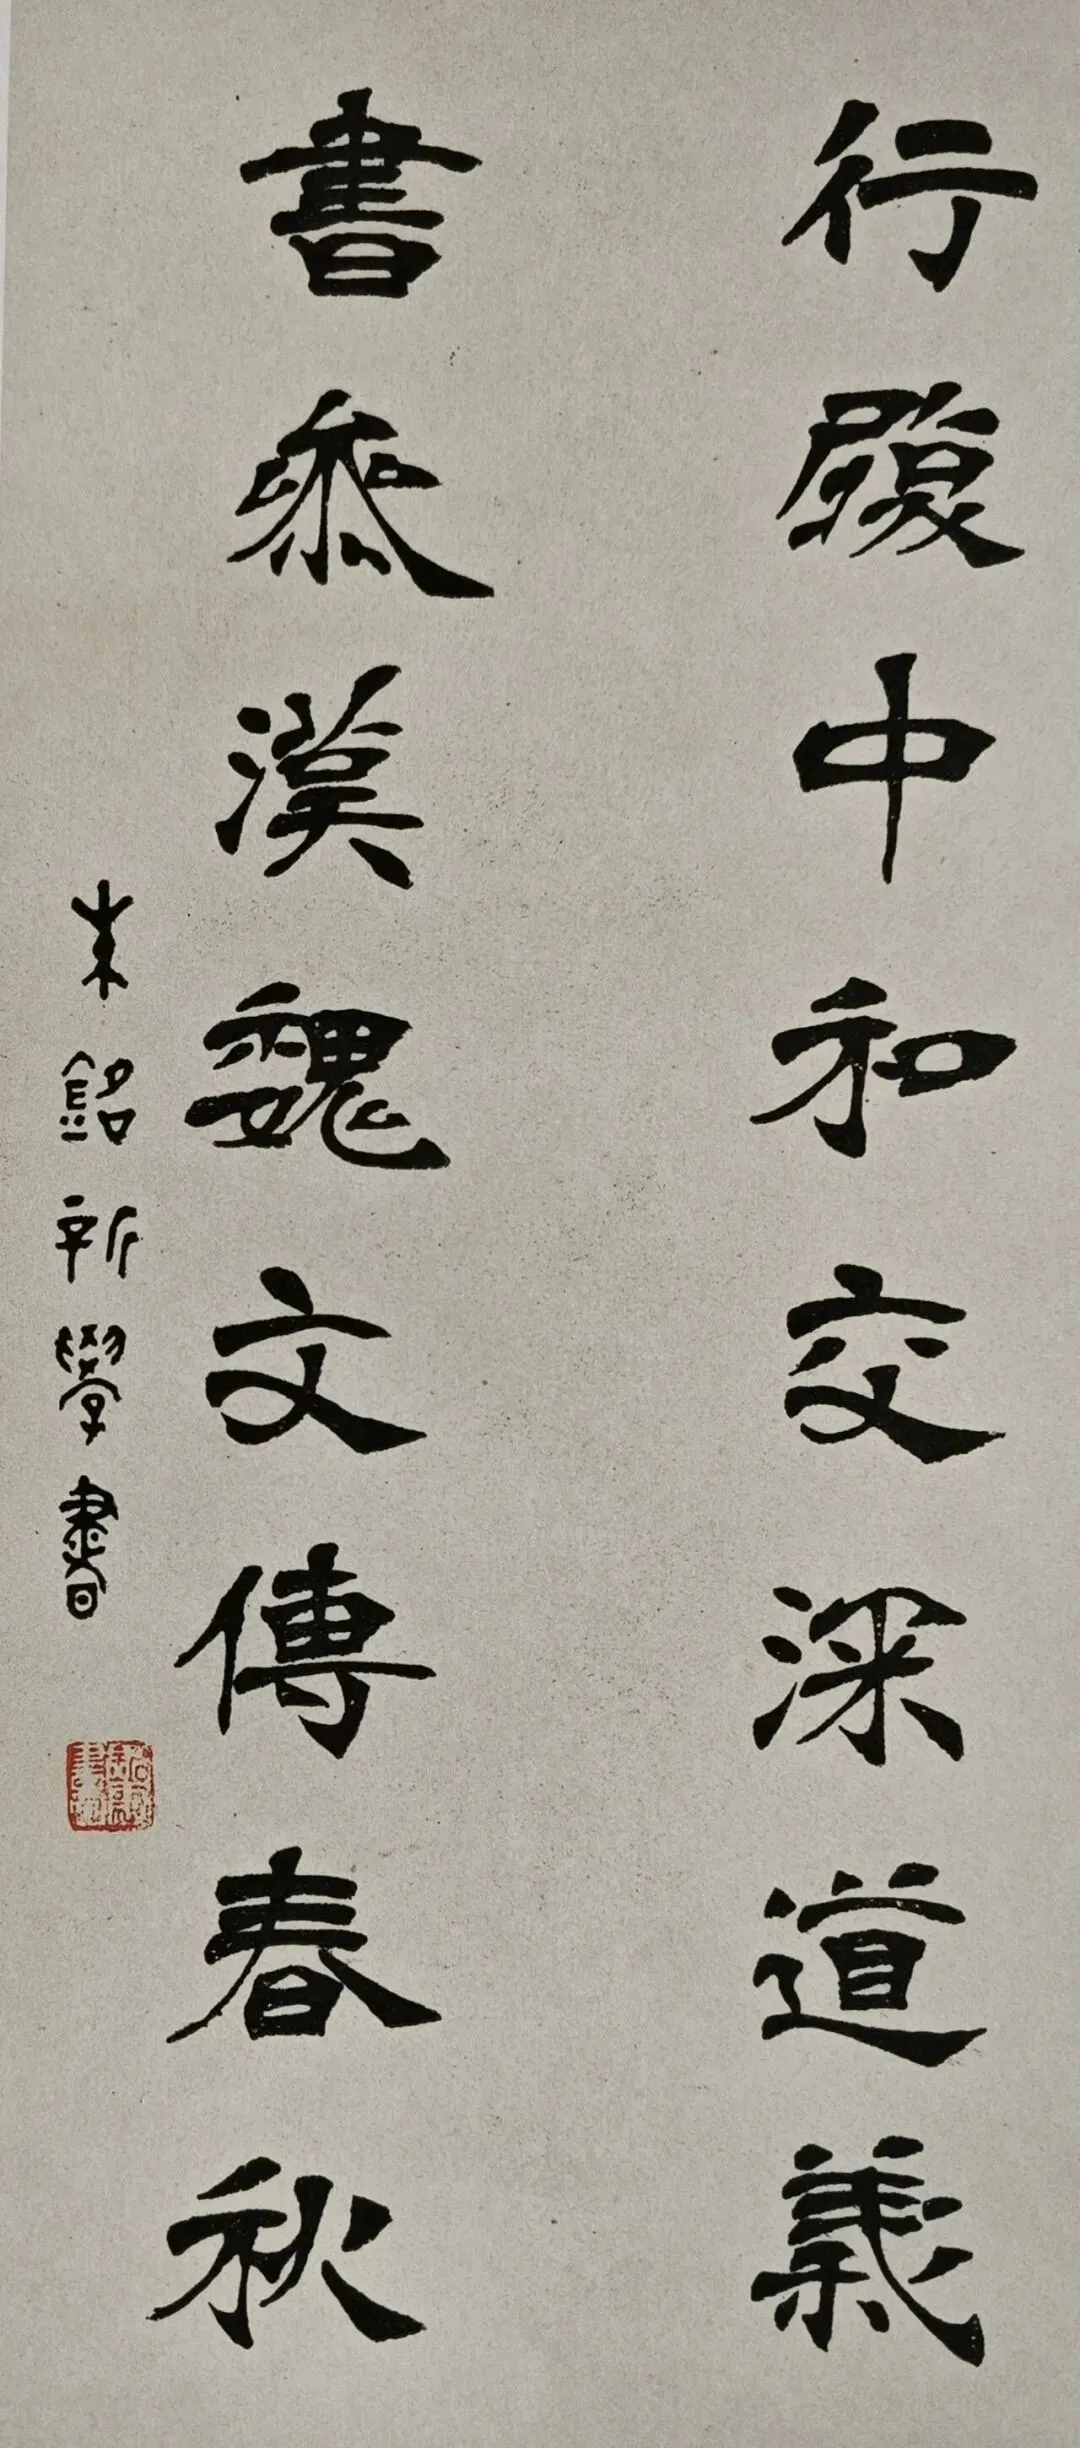 行履中和交深道義
書參漢魏文傳春秋
朱銘新學書